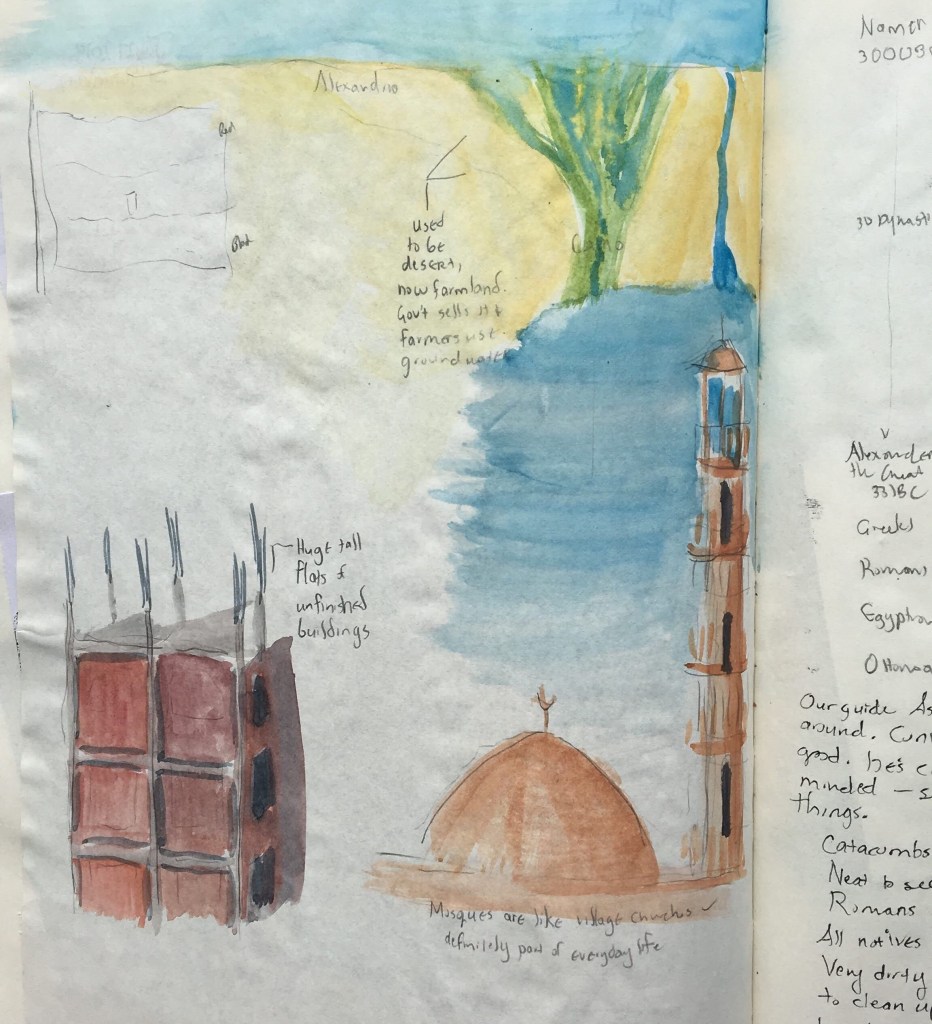 Alexandria
Red
used
to be
desert,
now farmland.
Gov't sells it &
farmers use
groundwater
Cairo
Huge tall
flats &
unfinished
buildings
Mosques are like village churches
definitely part of everyday life
Namer
3000B
30 Dynast
Alexander
the Great
331BC
Greeks
Romans
Ottoma
Our guide As
around.
good. he's c
minded – s
things.
Catacombs
Neat to see
Romans
All natives
Very dirty
to clean up